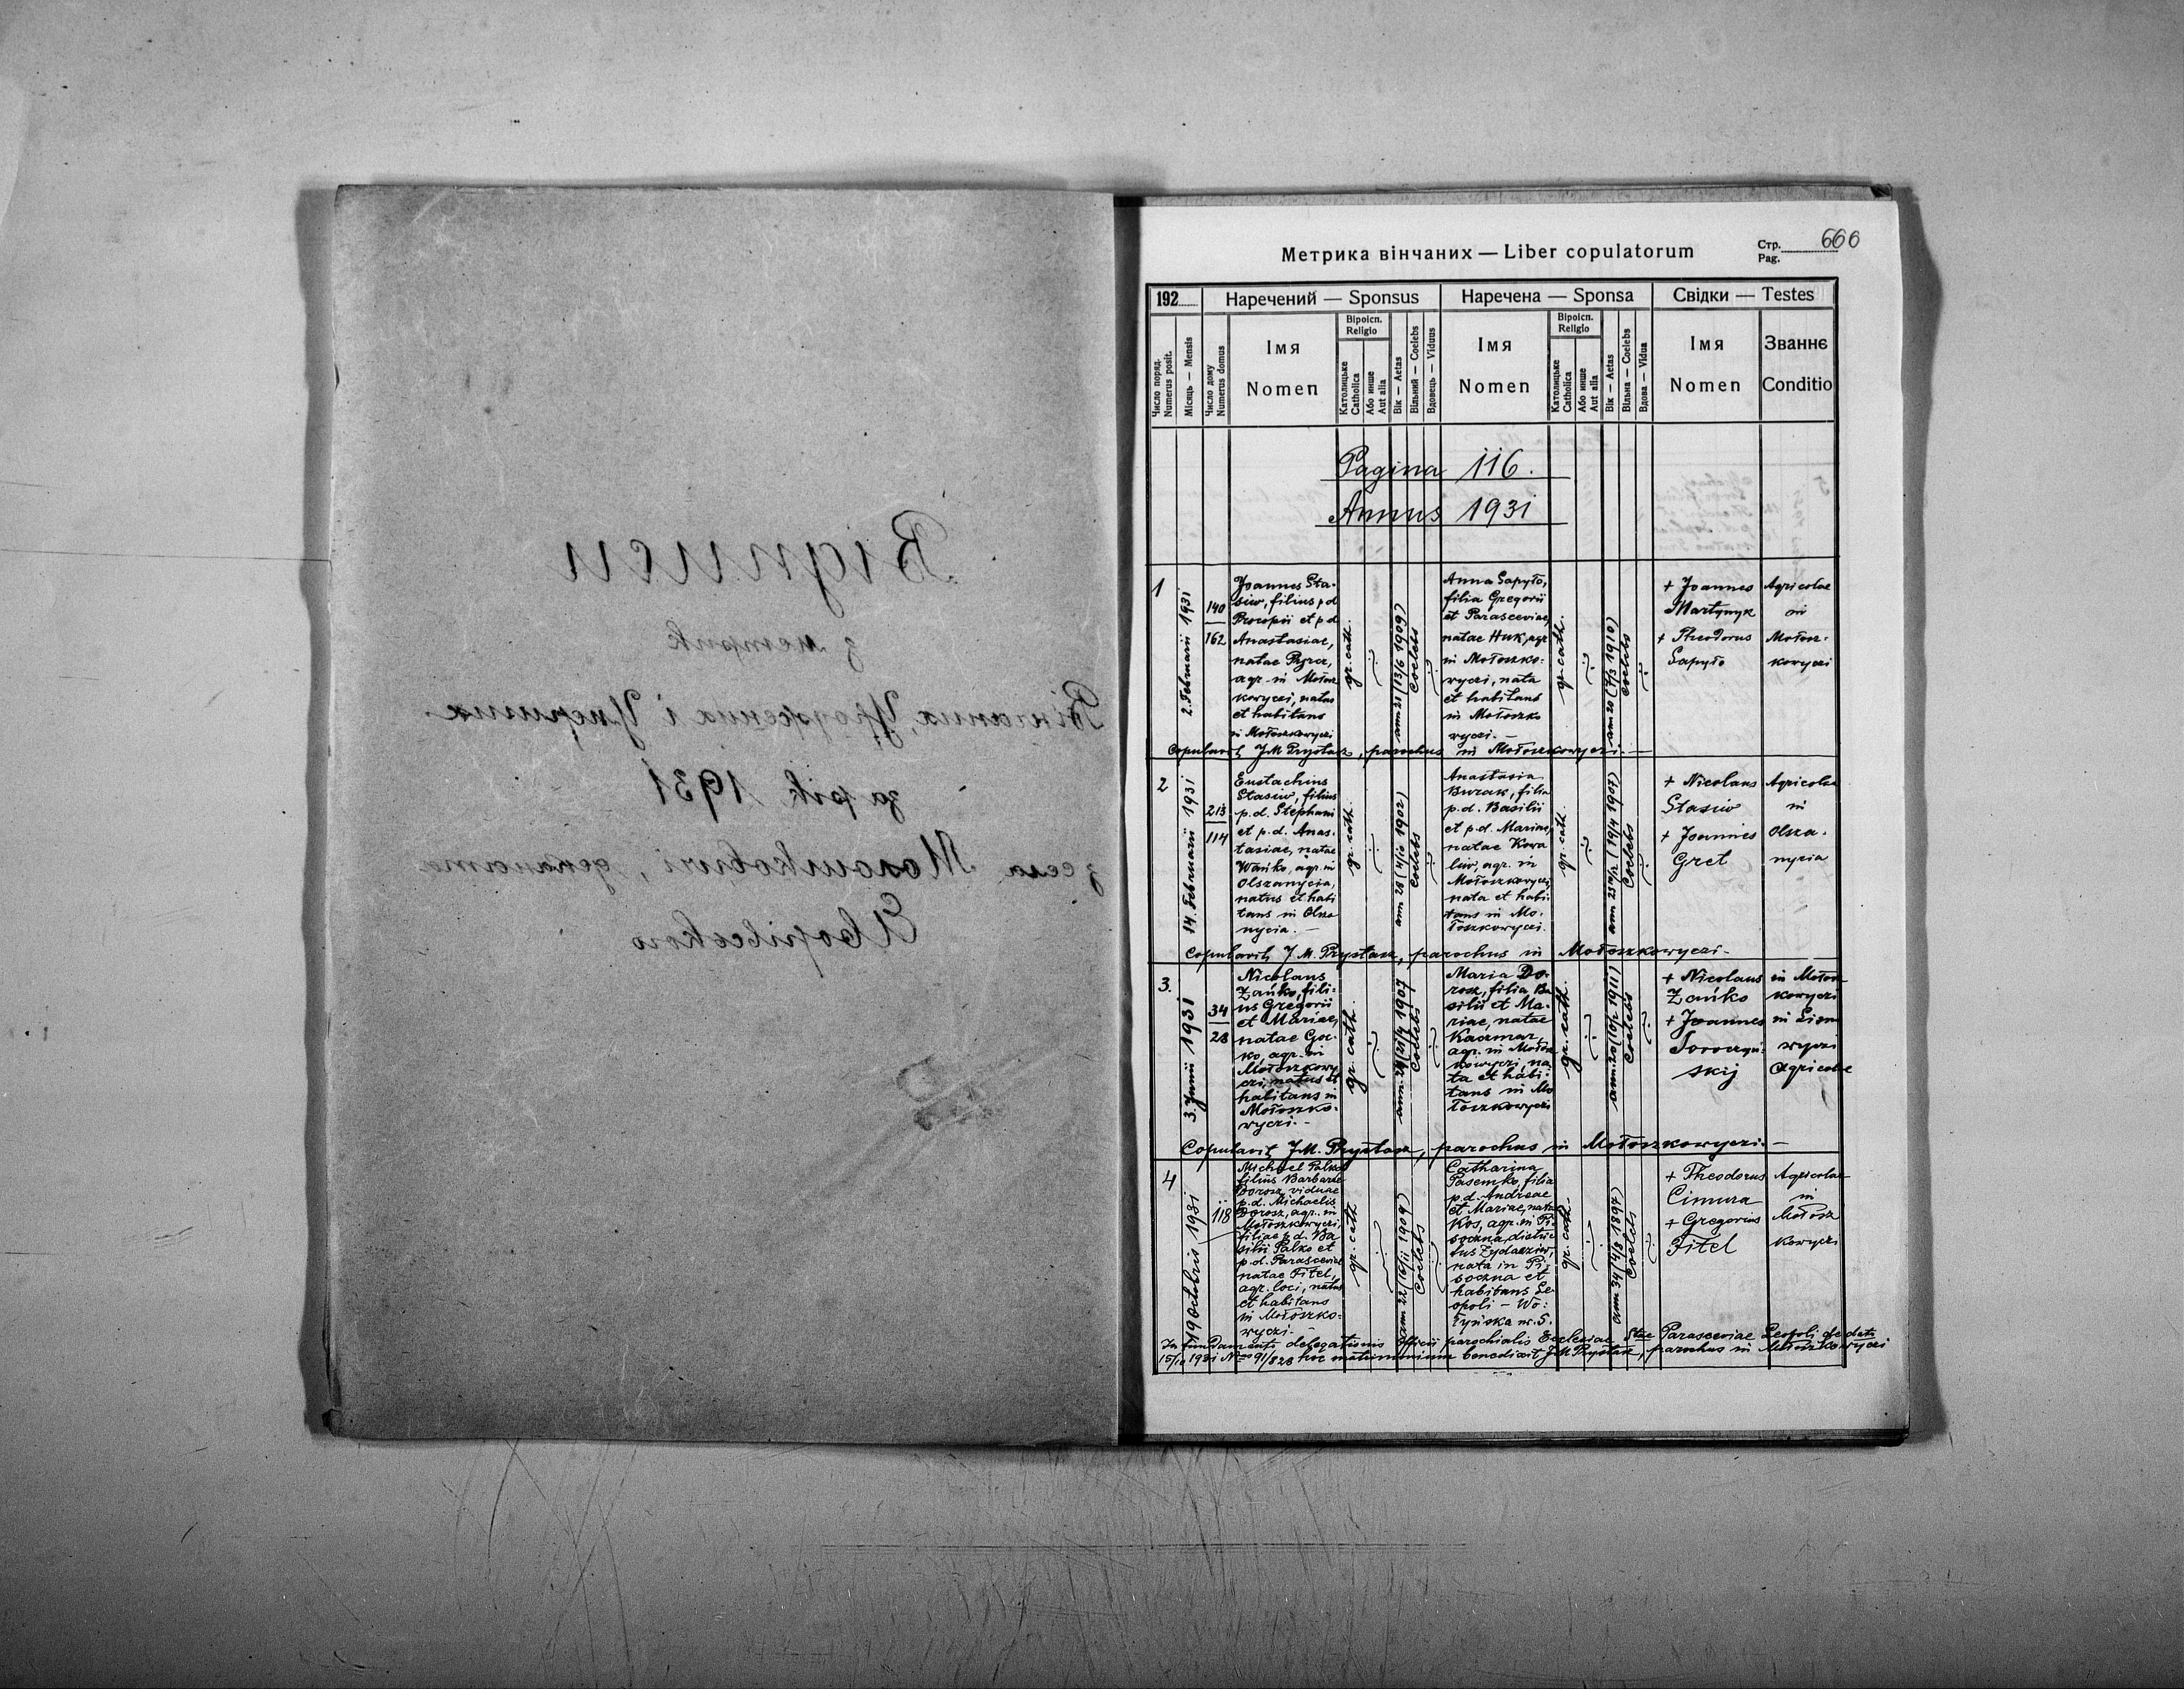 Відписи
з метрик
Вінчаних, Уроджених і Умерших
за рік 1931
з села Молошковичі, деканата
Яворівського
Метрика вінчаних — Liber copulatorum
Стр. 666
Pag.
192
Наречений — Sponsus
Наречена — Sponsa
Свідки — Testes
Число поряд.
Numerus posit.
Місяць — Mensis
Число дому
Numerus domus
Імя
Nomen
Віроісп.
Religio
Католицьке
Catholica
Або инше
Aut alia
Вік — Aetas
Вільний — Coelebs
Вдовець — Viduus
Імя
Nomen
Віроісп.
Religio
Католицьке
Catholica
Або инше
Aut alia
Вік — Aetas
Вільна — Coelebs
Вдова — Vidua
Імя
Nomen
Званнє
Conditio
Pagina 116.
Annus 1931
1
2. Februarii 1931
140
162
Joannes Sta-
siw, filius p.d
Procopii et p.d
Anastasiae,
natae
agr. in Mołosz
kowyczi, natus
et habitans
in Mołoszkowyczi
gr. cath.
ann 21 (13/6 1909)
Coelebs
Anna Sapyło,
filia Gregorii
et Parasceviae,
natae Huk, agr
in Mołoszko-
wyczi, nata
et habitans
in Mołoszko
wyczi. —
gr. cath.
ann 20 (7/3 1910)
Coelebs
+ Joannes
Martynyk
+ Theodorus
Sapyło
Agricolae
in
Mołosz-
kowyczi
Copulavit J.M. Prystasz, parochus in Mołoszkowyczi. —
2
14. Februarii 1931
213
114
Eustachius
Stasiw, filius
p.d. Stephani
et p.d. Anas-
tasiae, natae
Wańko, agr. in
Olszanycia,
natus et habi
tans in Olsza
nycia. —
gr. cath.
ann 28 (4/10 1902)
Coelebs
Anastasia
Burak, filia
p.d. Basilii
et p.d. Mariae,
natae Kowa
liw, agr. in
Mołoszkowyczi,
nata et habi-
tans in Mo-
łoszkowyczi.
gr. cath.
(19/4 1907)
Coelebs
+ Nicolaus
Stasiw
+ Joannes
Gret
Agricolae
in
Olsza-
nycia
Copulavit J.M. Prystasz, parochus in Mołoszkowyczi. —
3.
3. Junii 1931
34
28
Nicolaus
Zańko, fili-
us Gregorii
et Mariae,
natae Goc-
ko, agr. in
Mołoszkowy
czi, natus et
habitans in
Mołoszko-
wyczi. —
gr. cath.
1907
Coelebs
Maria Do-
rosz, filia Ba
silii et Ma-
riae, natae
Kaczmar,
agr. in Mołosz
kowyczi, na-
ta et habi-
tans in Mo
łoszkowyczi
gr. cath.
1911)
Coelebs
+ Nicolaus
Zańko
+ Joannes
skij
in Mołosz
kowyczi
in
wyczi
Agricolae
Copulavit J.M. Prystasz, parochus in Mołoszkowyczi. —
4
19 Octobris 1931
118
Michael Palko
filius Barbarae
Dorosz, viduae
p.d. Michaelis
Dorosz, agr. in
Mołoszkowyczi,
filiae p.d. Ba
silii Palko et
p.d. Parasceviae
natae Fitel,
agr. loci, natus
et habitans
in Mołoszko-
wyczi. —
gr. cath
ann 22 (16/11 1909)
Coelebs
Catharina
Pasemko, filia
p.d. Andreae
et Mariae, natae
Kos, agr. in Pi-
soczna, distric
tus Żydaczów,
nata in Pi-
soczna et
habitans Le-
opoli — Wo-
łyńska nr. 5.
gr. cath.
ann 34 (4/8 1897)
Coelebs
+ Theodorus
Cimura
+ Gregorius
Fitel
Agricolae
in
Mołosz
kowyczi
In fundamento delegationis Officii parochialis Ecclesiae Stae Parasceviae Leopoli de dato
15/10 1931 No 91/828 hoc matrimonium benedixit J.M. Prystasz, parochus in Mołoszkowyczi